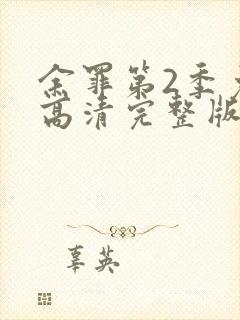 余罪第2季
高清完整版
辜英